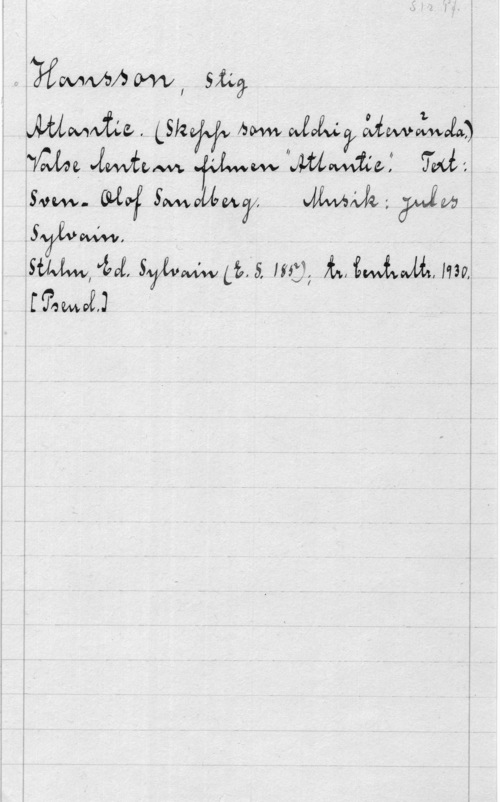 Hansson, Stig
Atlantic. (Skepp som aldrig återvända.)
Valse lente ur filmen "Atlantic". Text:
Sven-Olof Sandberg. Musik: Jules
Sylvain.
Sthlm, Ed. Sylvain (E. S. 185), tr. Centraltr. 1930.
[Pseud.]